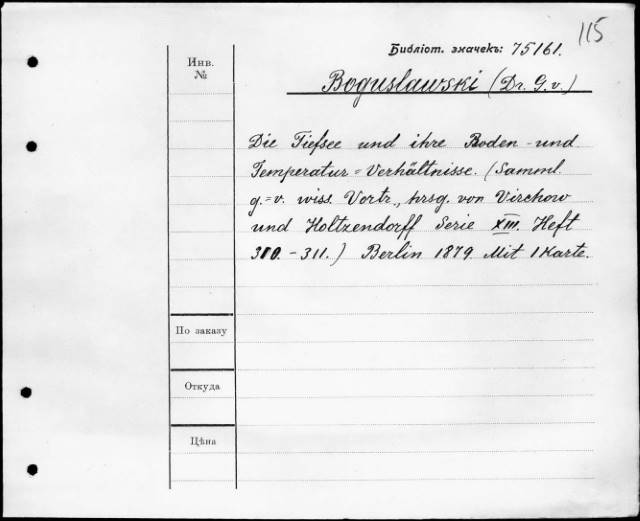 115
Библіот. значекъ: 75161.
Инв.
№
Boguslawski (Dr. G. v.)
Die Tiefsee und ihre Boden- und
Temperatur=Verhältnisse. (Samml.
g.=v. wiss. Vortr., hrsg. von Virchow
und Holtzendorff Serie XIII. Heft
310.-311.) Berlin 1879. Mit 1 Karte.
По заказу
Откуда
Цѣна